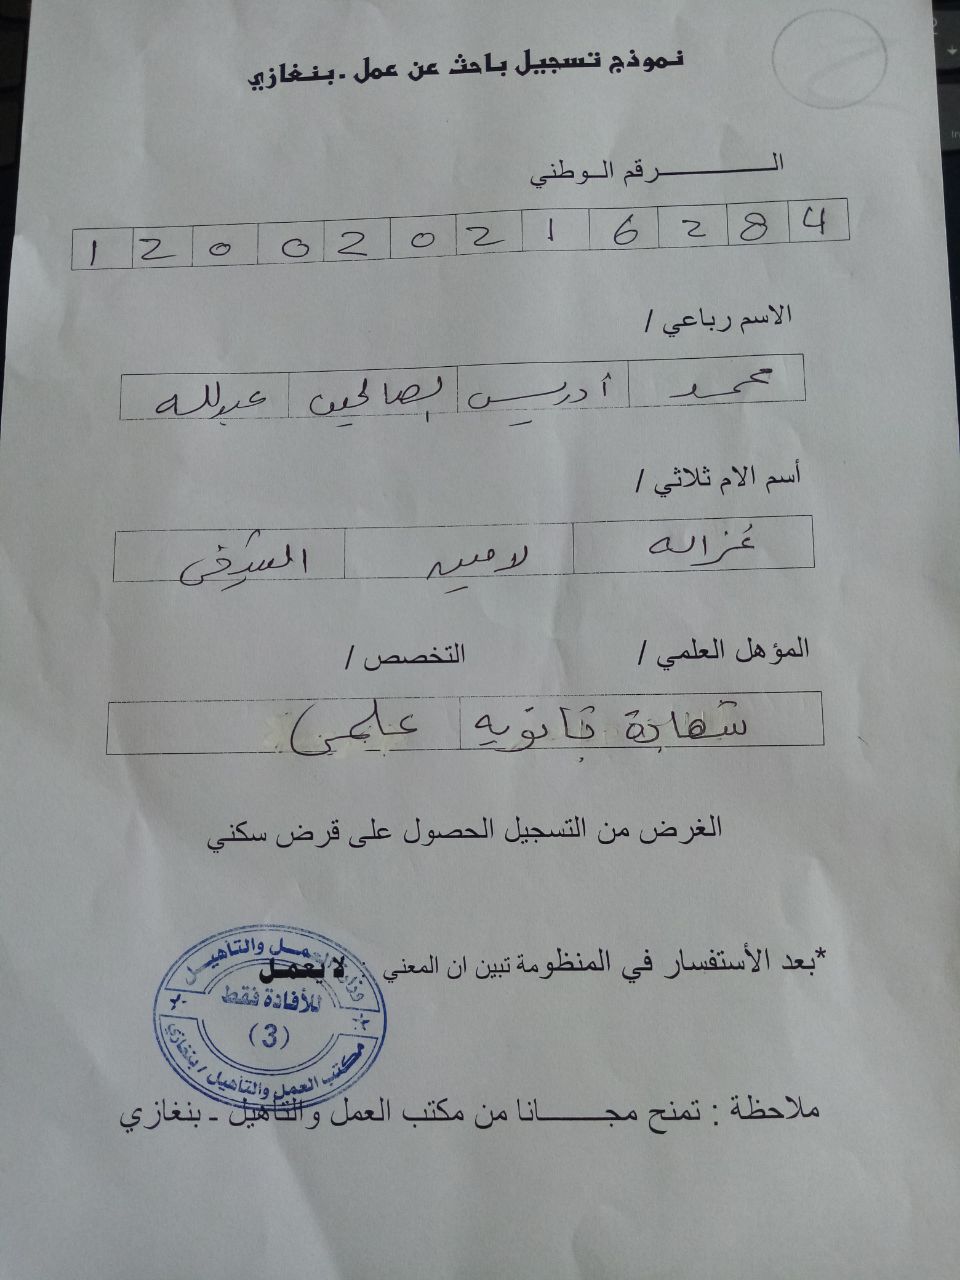 نموذج تسجيل باحث عن عمل - بنغازي
الـــــــــرقم الـوطني
1 2 0 0 2 0 2 1 6 2 8 4
الاسم رباعي /
محمد أدريس الصالحين عبدلله
أسم الام ثلاثي /
غزاله لامين الشرفي
المؤهل العلمي / التخصص /
شهادة ثانويه علمي
الغرض من التسجيل الحصول على قرض سكني
*بعد الأستفسار في المنظومة تبين ان المعني لا يعمل
وزارة العمل والتأهيل
للأفادة فقط
(3)
مكتب العمل والتأهيل / بنغازي
ملاحظة : تمنح مجـــــانا من مكتب العمل والتأهيل - بنغازي